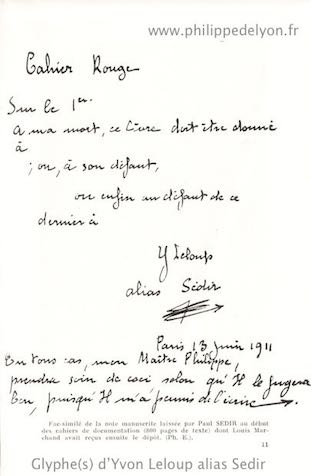 www.philippedelyon.fr
Cahier Rouge
Sur le 1er.
A ma mort, ce livre doit être donné
à
; ou, à son défaut,
ou enfin au défaut de ce
dernier à
Y Leloup
alias Sédir
Paris 13 juin 1911
En tous cas, mon Maître Philippe,
prendra soin de ceci, selon qu'Il le jugera
bon, puisqu'Il m'a permis de l'écrire
Fac-similé de la note manuscrite laissée par Paul SEDIR au début
des cahiers de documentation (800 pages de texte) dont Louis Mar-
chand avait reçus ensuite le dépôt. (Ph. E.).
11
Glyphe(s) d'Yvon Leloup alias Sedir